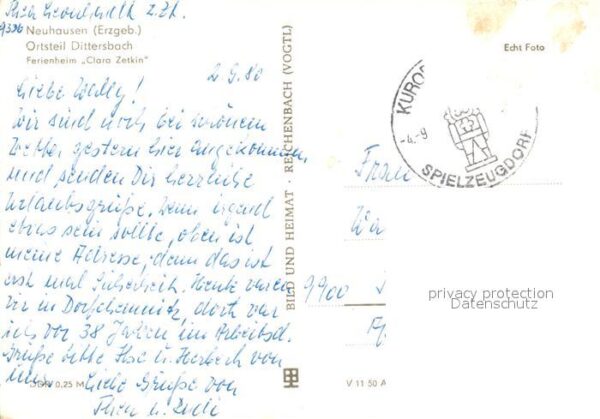 9336
Neuhausen (Erzgeb.)
Ortsteil Dittersbach
Ferienheim „Clara Zetkin"
2.9.80
Liebe Wally!
Wir sind noch bei schönem
Wetter gestern hier angekommen
und senden Dir herzliche
Urlaubsgrüße. Wenn irgend
etwas sein sollte, oben ist
meine Adresse, denn das ist
erst mal Heute waren
wir in Dorfchemnitz, dort war
ich vor 38 Jahren im Arbeitsd.
Grüße bitte Ilse u. Herbert von
uns. Liebe Grüße von
u. Rudi
DDR 0,25 M
BILD UND HEIMAT · REICHENBACH (VOGTL)
Echt Foto
KURO
-4.-9
SPIELZEUGDORF
Frau
9900
privacy protection
Datenschutz
V 11 50 A